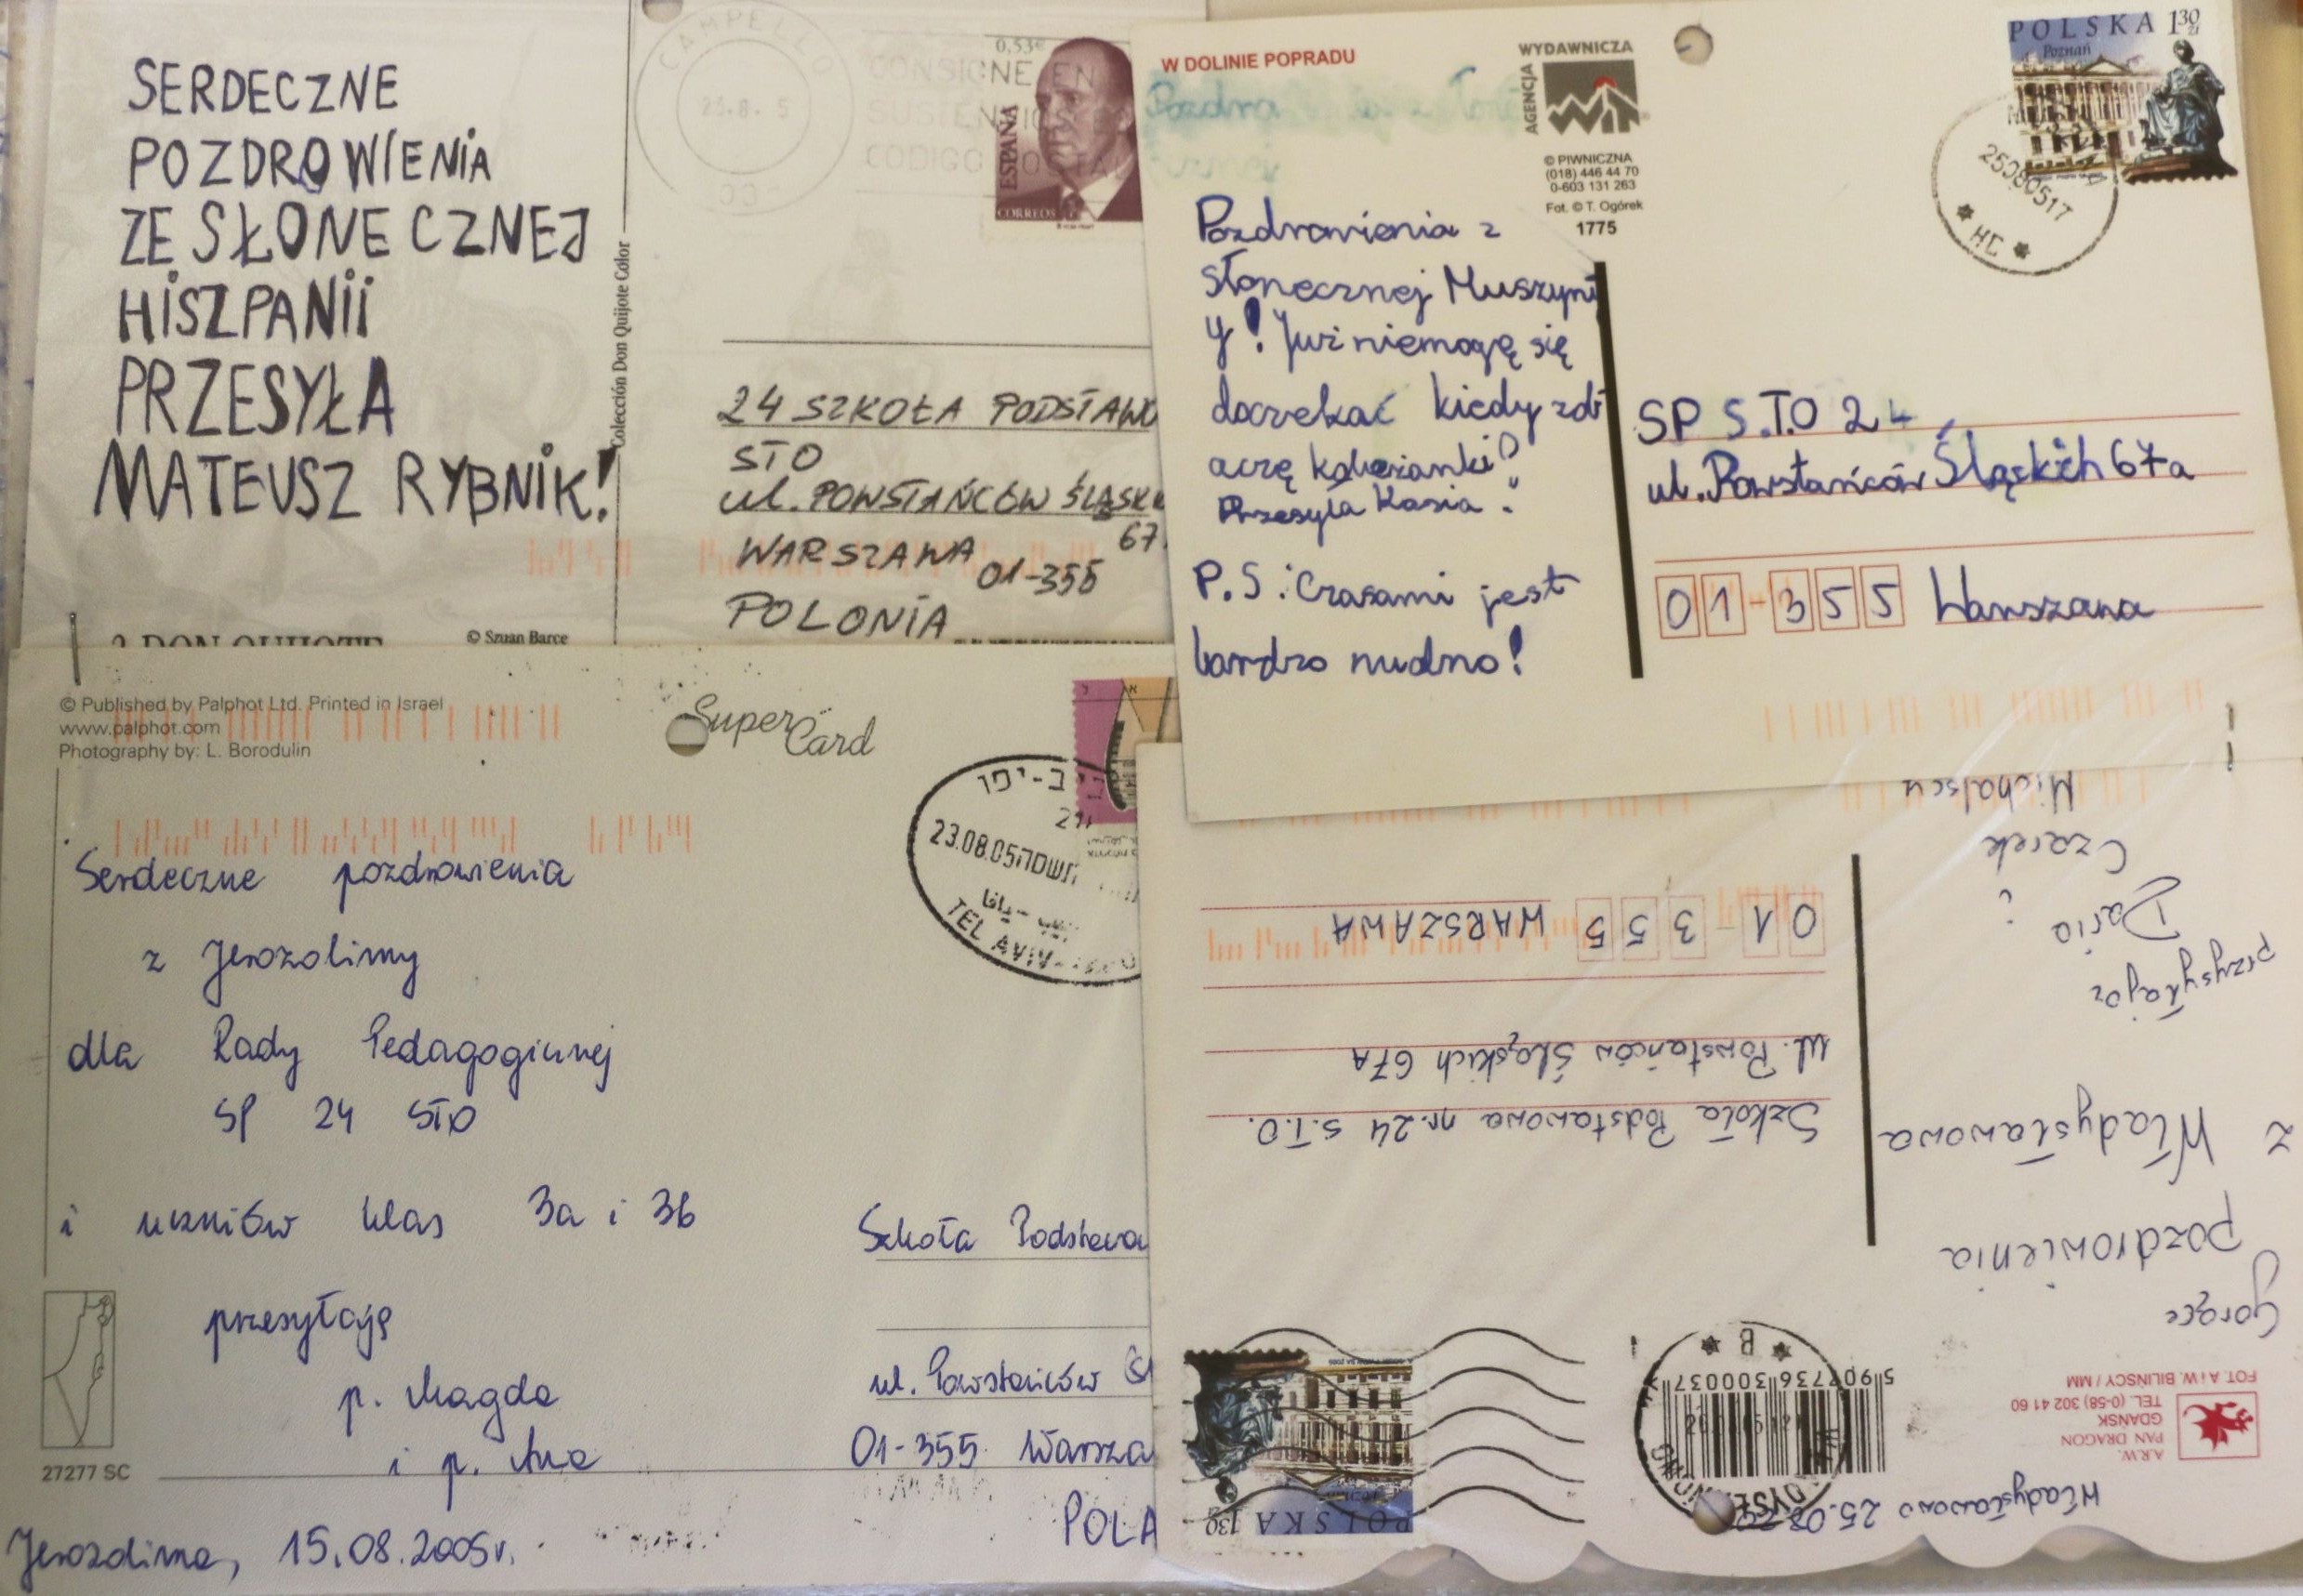 SERDECZNE
POZDROWIENIA
ZE SŁONECZNEJ
HISZPANII
PRZESYŁA
MATEUSZ RYBNIK!
Colección Don Quijote Color
© Szuan Barce
DON QUIJOTE
CAMPELLO
0,53€
ESPAÑA
CORREOS
CONSIGNE EN
CODIGO POSTAL
24 SZKOŁA PODSTAWO
STO
ul. POWSTAŃCÓW ŚLĄSK
67
WARSZAWA 01-355
POLONIA
W DOLINIE POPRADU
AGENCJA
WYDAWNICZA
© PIWNICZNA
(018) 446 44 70
0-603 131 263
Fot. © T. Ogórek
1775
Pozdrowienia z
słonecznej Muszyn
y! Już niemogę się
doczekać kiedy zob
aczę koleżanki?
Przesyła Kasia.
P.S: Czasami jest
bardzo nudno!
POLSKA 130 zł
Poznań
25080517
HC
SP S.T.O 24
ul. Powstańców Śląskich 67a
01-355 Warszawa
© Published by Palphot Ltd. Printed in Israel
www.palphot.com
Photography by: L. Borodulin
Super Card
23.08.05
TEL AVIV-
Serdeczne pozdrowienia
z Jerozolimy
dla Rady Pedagogicznej
SP 24 STO
i uczniów klas 3a i 3b
przesyłają
p. Magda
i p. Ana
27277 SC
Jerozolima, 15.08.2005r.
Szkoła Podstawow
ul. Powstańców Śl
01-355 Warsza
POLA
Władysławowo 25.08
A.R.W.
PAN DRAGON
GDAŃSK
TEL. (0-58) 302 41 60
FOT. A i W. BILIŃSCY / MM
5 907736 300037
B
POLSKA 130 zł
Gorące
pozdrowienia
z Władysławowa
przysyłając
Daria
i
Czarek
Michalscy
Szkoła Podstawowa nr. 24 S.T.O.
ul. Powstańców Śląskich 67A
01-355 WARSZAWA